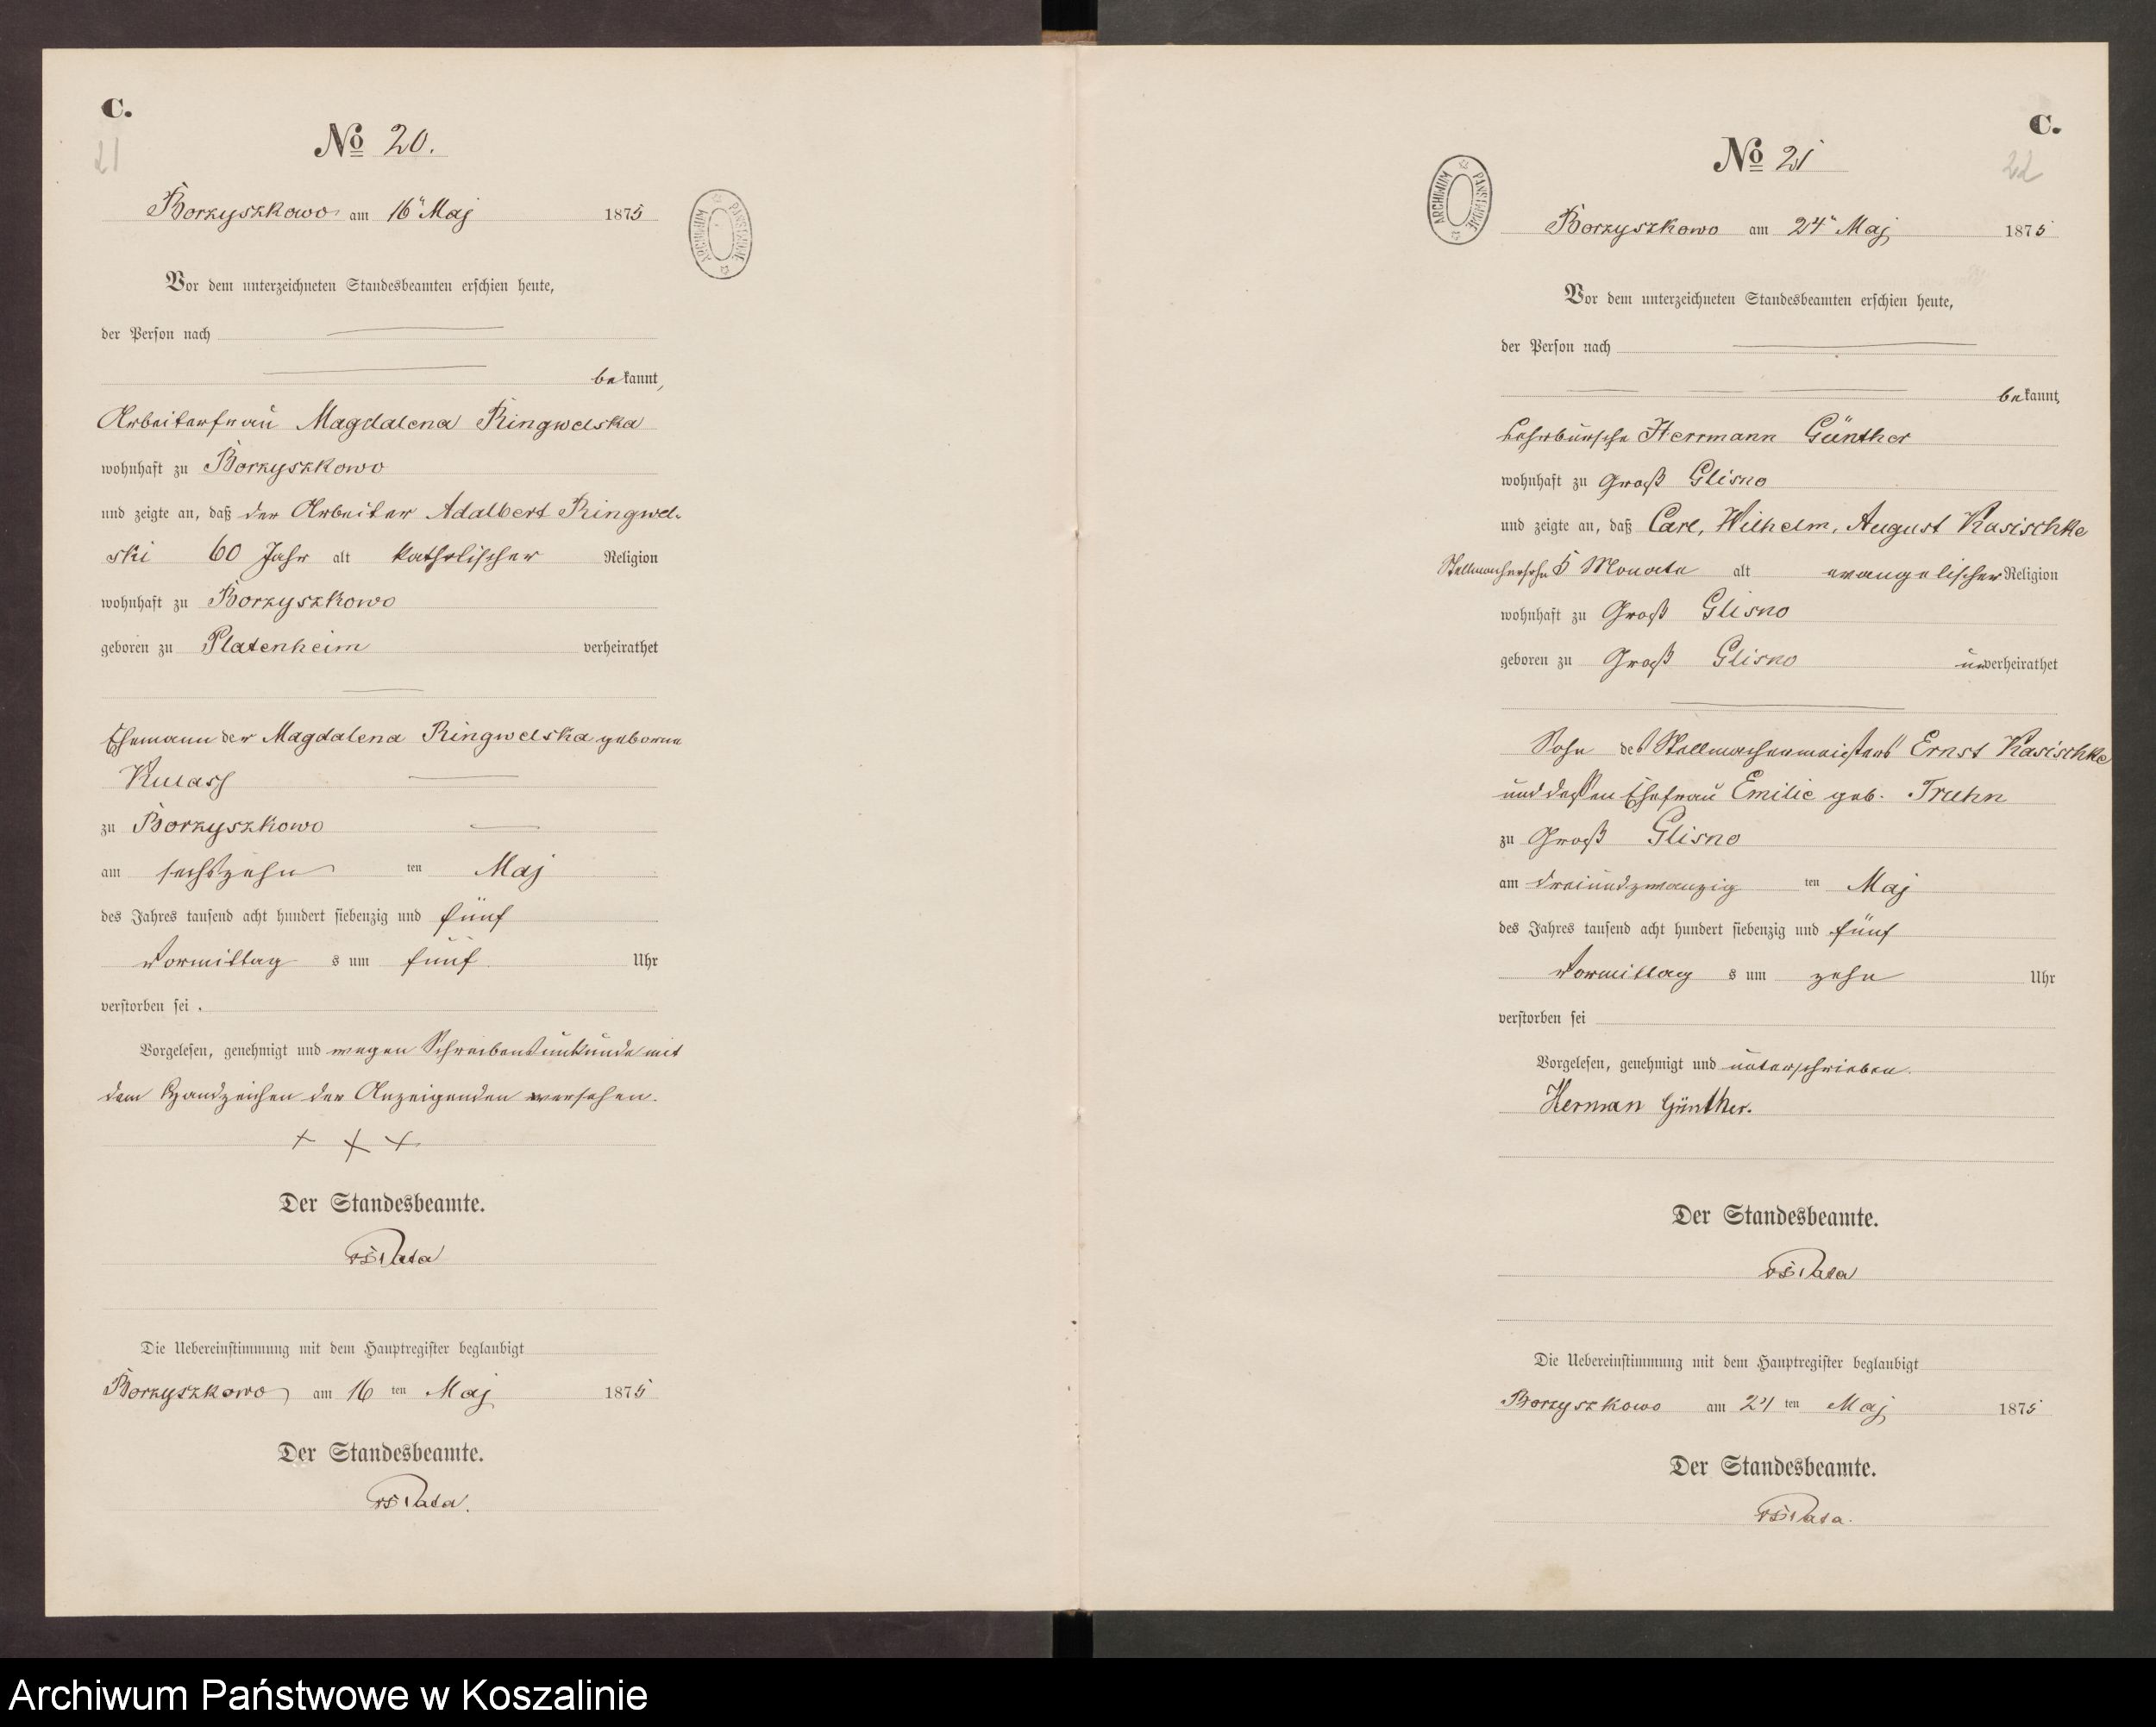 C.
21
No 20.
Borzyszkowo am 16 Maj 1875
ARCHIWUM PAŃSTWOWE
Vor dem unterzeichneten Standesbeamten erschien heute,
der Person nach
bekannt,
Arbeiterfrau Magdalena Ringwelska
wohnhaft zu Borzyszkowo
und zeigte an, daß der Arbeiter Adalbert Ringwel-
ski 60 Jahr alt katholischer Religion
wohnhaft zu Borzyszkowo
geboren zu Platenheim verheirathet
Ehemann der Magdalena Ringwelska geborne
zu Borzyszkowo
am sechszehn ten Maj
des Jahres tausend acht hundert siebenzig und fünf
Vormittag s um fünf Uhr
verstorben sei.
Vorgelesen, genehmigt und wegen Schreibensunkunde mit
dem Handzeichen der Anzeigenden versehen.
+ + +
Der Standesbeamte.
Die Uebereinstimmung mit dem Hauptregister beglaubigt
Borzyszkowo am 16 ten Maj 1875
Der Standesbeamte.
C.
22
No 21
ARCHIWUM PAŃSTWOWE
Borzyszkowo am 24 Maj 1875
Vor dem unterzeichneten Standesbeamten erschien heute,
der Person nach
bekannt,
Lehrbursche Herrmann Günther
wohnhaft zu Groß Glisno
und zeigte an, daß Carl, Wilhelm, August Kasischke
Stellmachersohn 5 Monate alt evangelischer Religion
wohnhaft zu Groß Glisno
geboren zu Groß Glisno unverheirathet
Sohn des Stellmachermeisters Ernst Kasischke
und dessen Ehefrau Emilie geb. Truhn
zu Groß Glisno
am dreiundzwanzig ten Maj
des Jahres tausend acht hundert siebenzig und fünf
Vormittag s um zehn Uhr
verstorben sei
Vorgelesen, genehmigt und unterschrieben.
Herman Günther.
Der Standesbeamte.
Die Uebereinstimmung mit dem Hauptregister beglaubigt
Borzyszkowo am 24 ten Maj 1875
Der Standesbeamte.
Archiwum Państwowe w Koszalinie